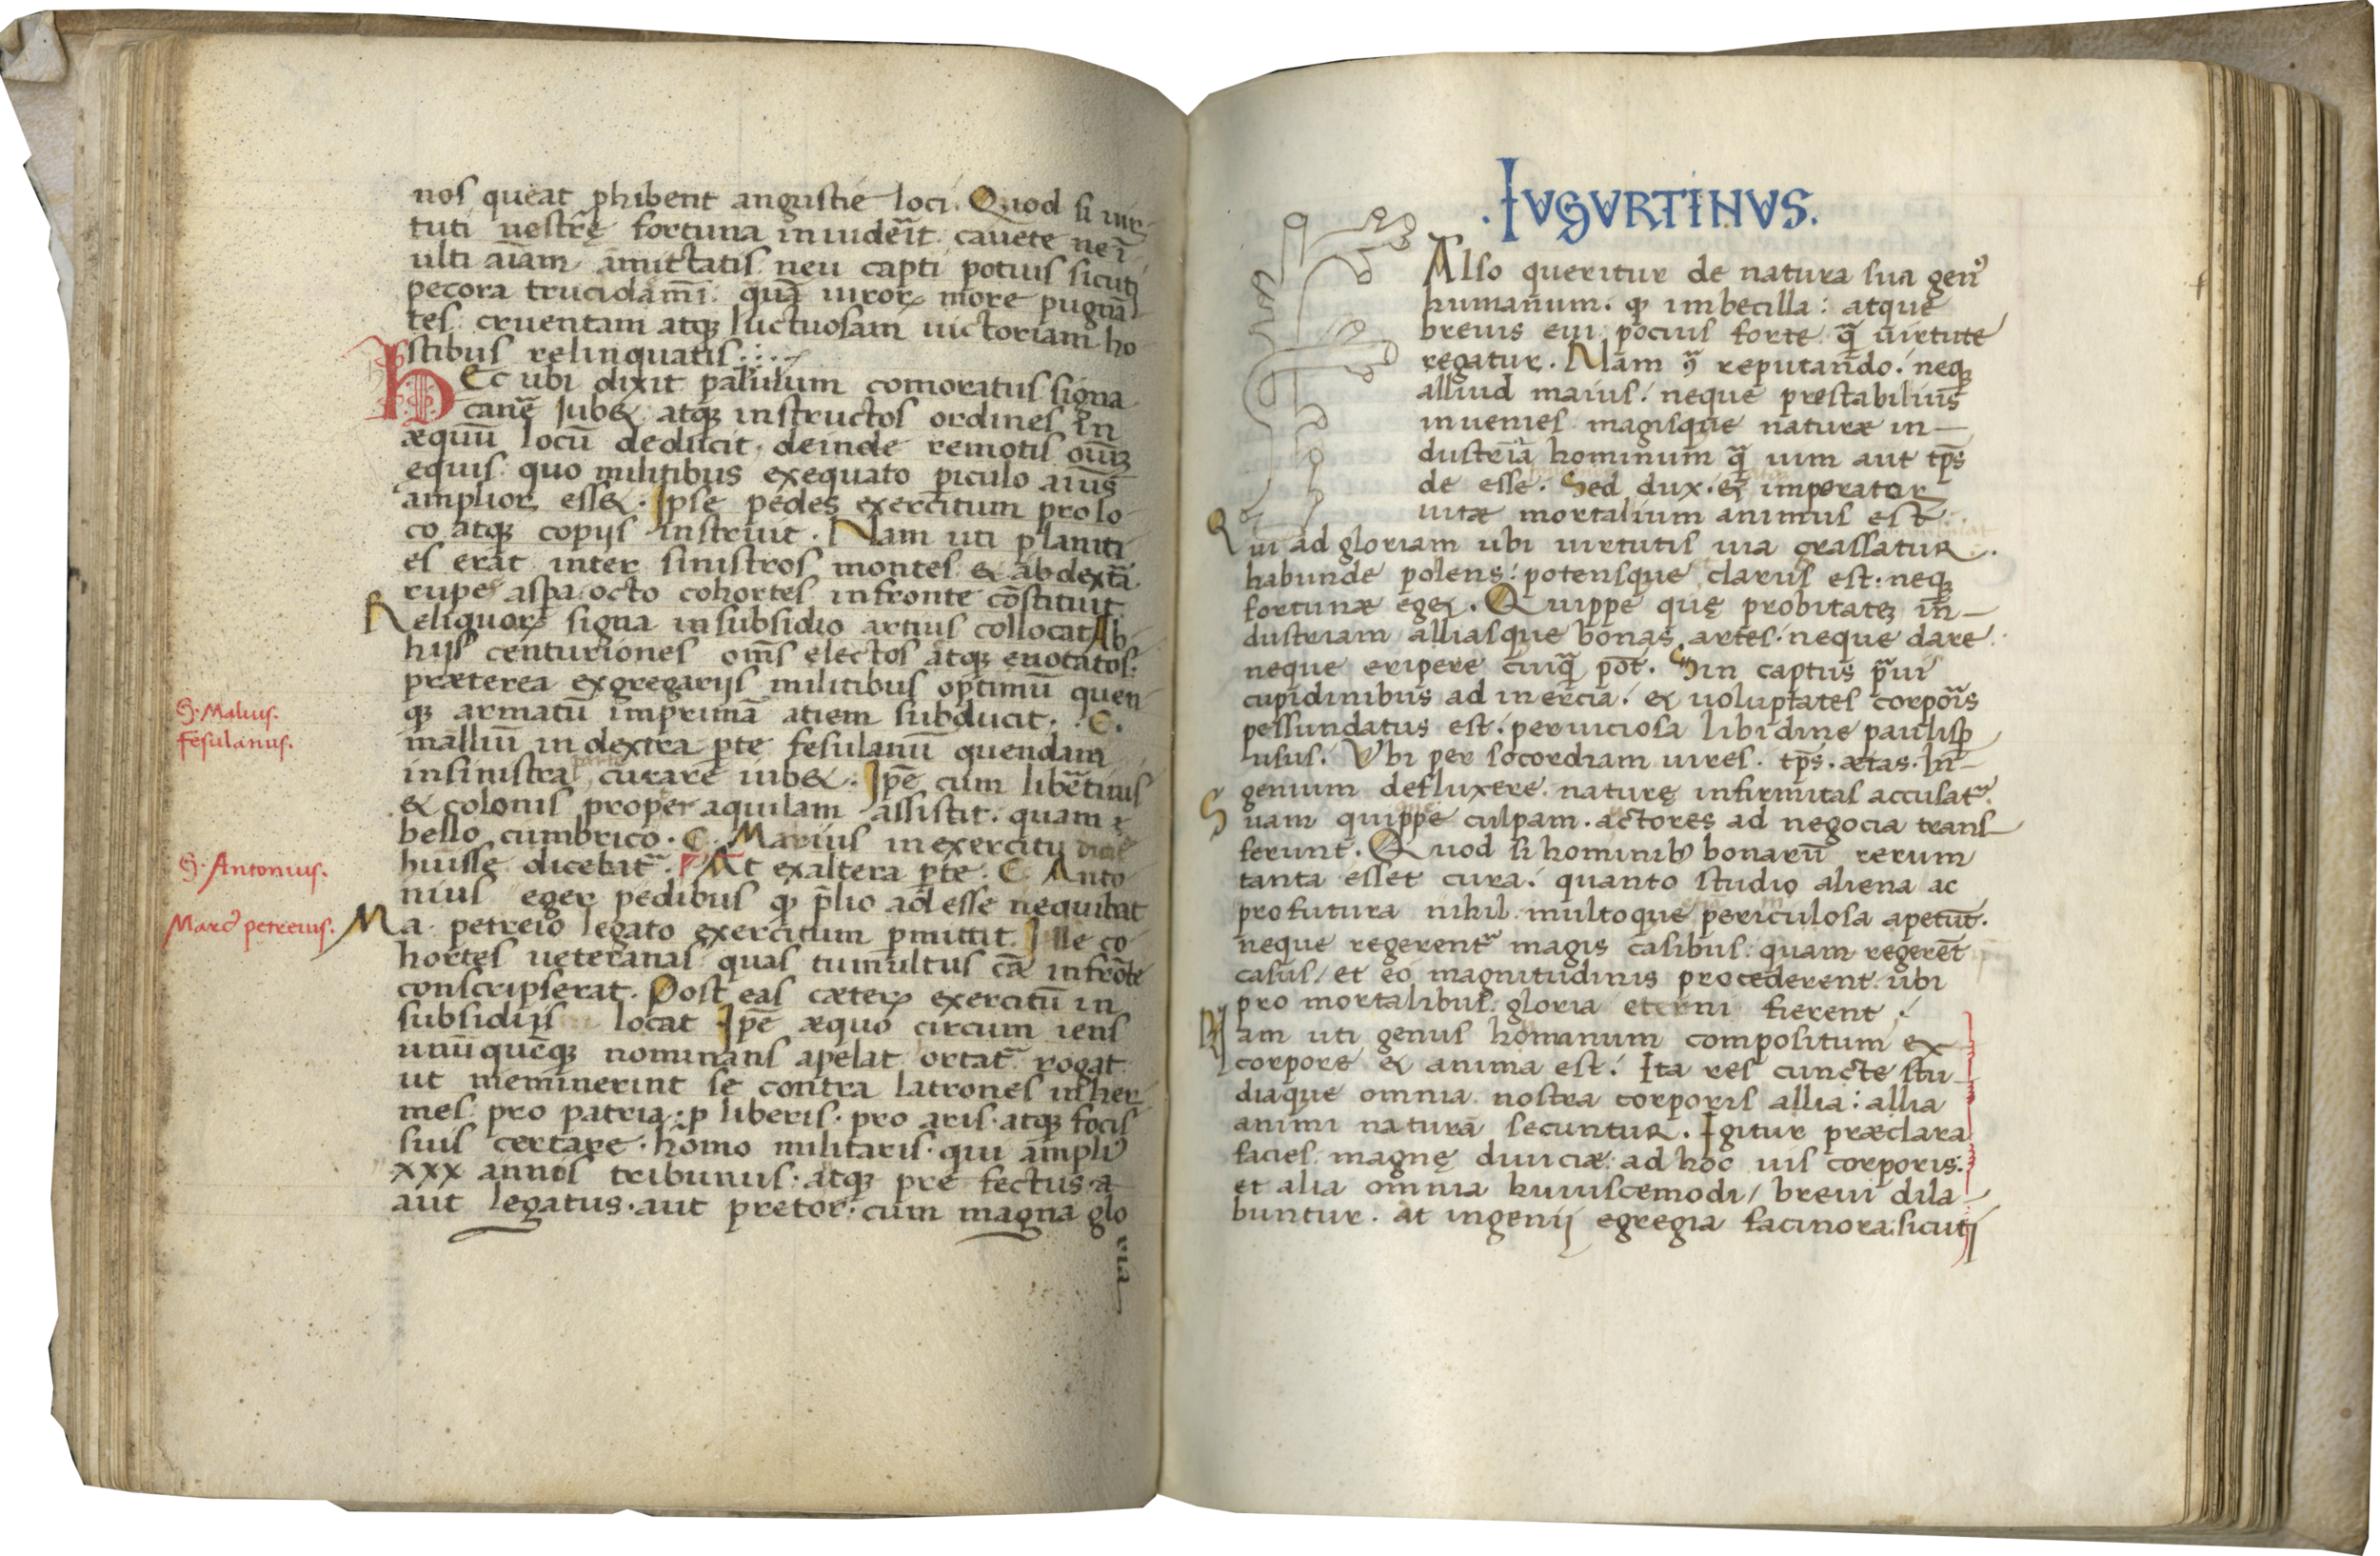 nos queat ꝓhibent angustie loci. Quod si uir
tuti uestrę fortuna inuiderit cauete ne ī
ulti aīam amictatis neu capti potius sicuti
pecora trucidamī quā uirorꝝ more pugnā
tes cruentam atqꝫ luctuosam uictoriam ho
stibus relinquatis
hEc ubi dixit palulum comoratus signa
canē Iubet atqꝫ instructos ordines in
æquū locū deducit. deinde remotis
equis quo militibus exequato ꝑiculo
amplior esset. Ipse pedes exercitum pro lo
co atqꝫ copijs instruit. Nam uti planiti
es erat inter sinistros montes & ab dextā
rupe aspa octo cohortes in fronte cōstituit
Reliquorꝝ signa in subsidio artius collocat Ab
hijs centuriones om̄s electos atqꝫ euotatos.
præterea ex gregarijs militibus optimū quen
qꝫ armatū in primā atiem subducit. C.
S. Malius.
Fesulanus.
malliū in dextra ꝑte fesulanū quendam
in sinistra parte curare iubet. Ipē cum libertinis
& colonis proper aquilam assistit. quam
bello cumbrico. C. Marius in exercitu
huisse dicebat At ex altera ꝑte C. Anto
S. Antonius.
nius eger pedibus ꝙ p̄lio adesse nequibat
Marcꝰ petreius.
Ma. petreio legato exercitum ꝑmittit. Ille co
hortes ueteranas quas tumultus cā in frōte
conscripserat. Post eas cæterꝝ exercitū in
subsidijs locat Ipē æquo circum iens
unūquēqꝫ nominans apelat ortat rogat
ut meminerint se contra latrones inher
mes pro patria ꝑ liberis. pro aris. atqꝫ focis
suis certare. homo militaris. qui ampliꝰ
xxx annos tribunus. atqꝫ prefectus.
aut legatus. aut pretor. cum magna glo
ria
.IVGVRTINVS.
Also queritur de natura sua genꝰ
humanum. ꝙ imbecilla: atque
breuis eui pocius forte quā uirtute
regatur. Nam reputando. neqꝫ
alliud maius. neque prestabilius
inuenies magisque naturæ in
dustriā hominum quā uim aut tp̄s
de esse. Sed dux. & imperator
uitæ mortalium animus est
Qui ad gloriam ubi uirtutis uia grassatur.
habunde polens: potensque clarus est. neqꝫ
fortunæ eget. Quippe quę probitateꝫ in
dustriam alliasque bonas artes. neque dare
neque eripere cuiquā pōt. Sin captus prauis
cupidinibus ad inercia. & uoluptates corporis
pessundatus est. perniciosa libidine paulisꝑ
usus. Vbi per socordiam uires. tp̄s. ætas. In
genium defluxere. naturę infirmitas accusat
Suam quippe culpam. actores ad negocia trans
ferunt. Quod si hominibꝰ bonarū rerum
tanta esset cura. quanto studio aliena ac
profutura nihil multoque periculosa apetūt.
neque regerent magis casibus. quam regerēt
casus, et eo magnitudinis procederent ubi
pro mortalibus gloria eterni fierent.
Nam uti genus homanum compositum ex
corpore & anima est. Ita res cuncte stu
diaque omnia nostra corporis allia: allia
animi naturā secuntur. Igitur præclara
facies. magnę diuiciæ ad hoc uis corporis.
et alia omnia huiuscemodi, breui dila
buntur. at ingenij egregia facinora sicuti